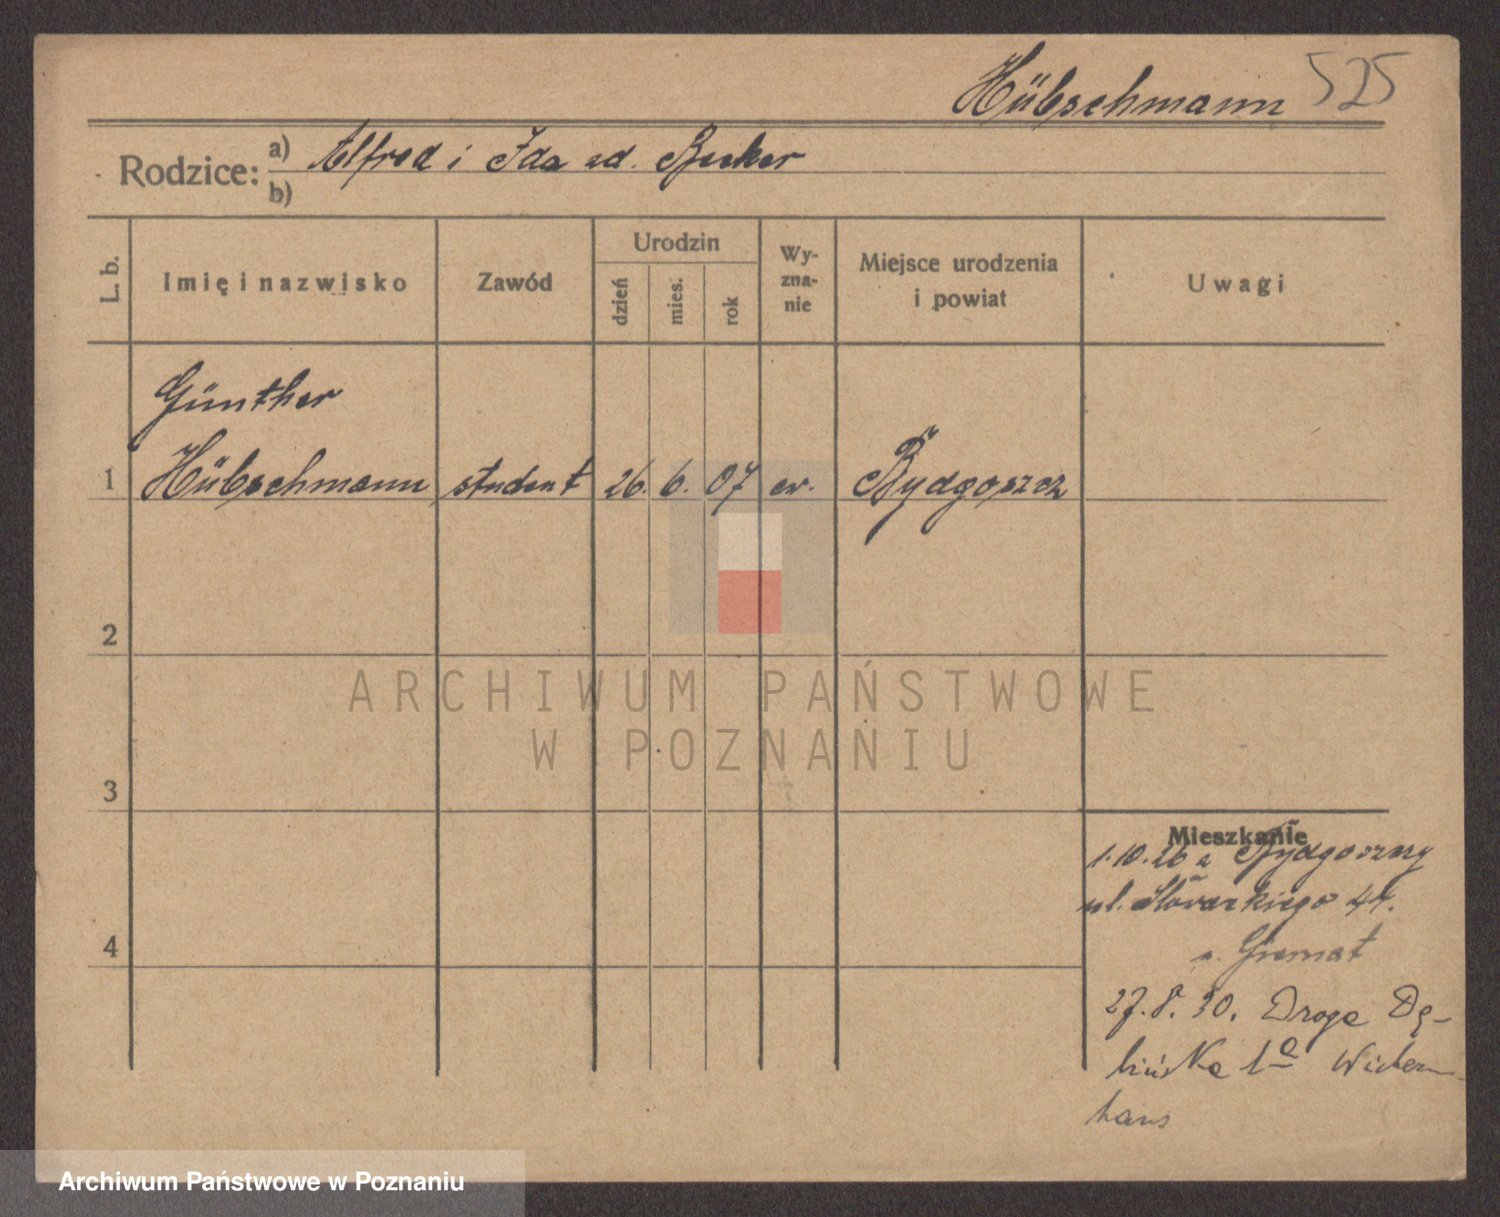 Hübschmann 525
Rodzice: a) Alfred i Ida zd. Becker
b)
L. b.
Imię i nazwisko
Zawód
Urodzin
dzień
mies.
rok
Wy-
zna-
nie
Miejsce urodzenia
i powiat
Uwagi
Günther
1 Hübschmann student 26. 6. 07 ew. Bydgoszcz
2
ARCHIWUM PAŃSTWOWE
W POZNANIU
3
Mieszkanie
1.10.26 z Bydgoszczy
ul. Słowackiego 44.
4
27.8.30. Droga Dę-
bińska 1a Wichern
haus
Archiwum Państwowe w Poznaniu